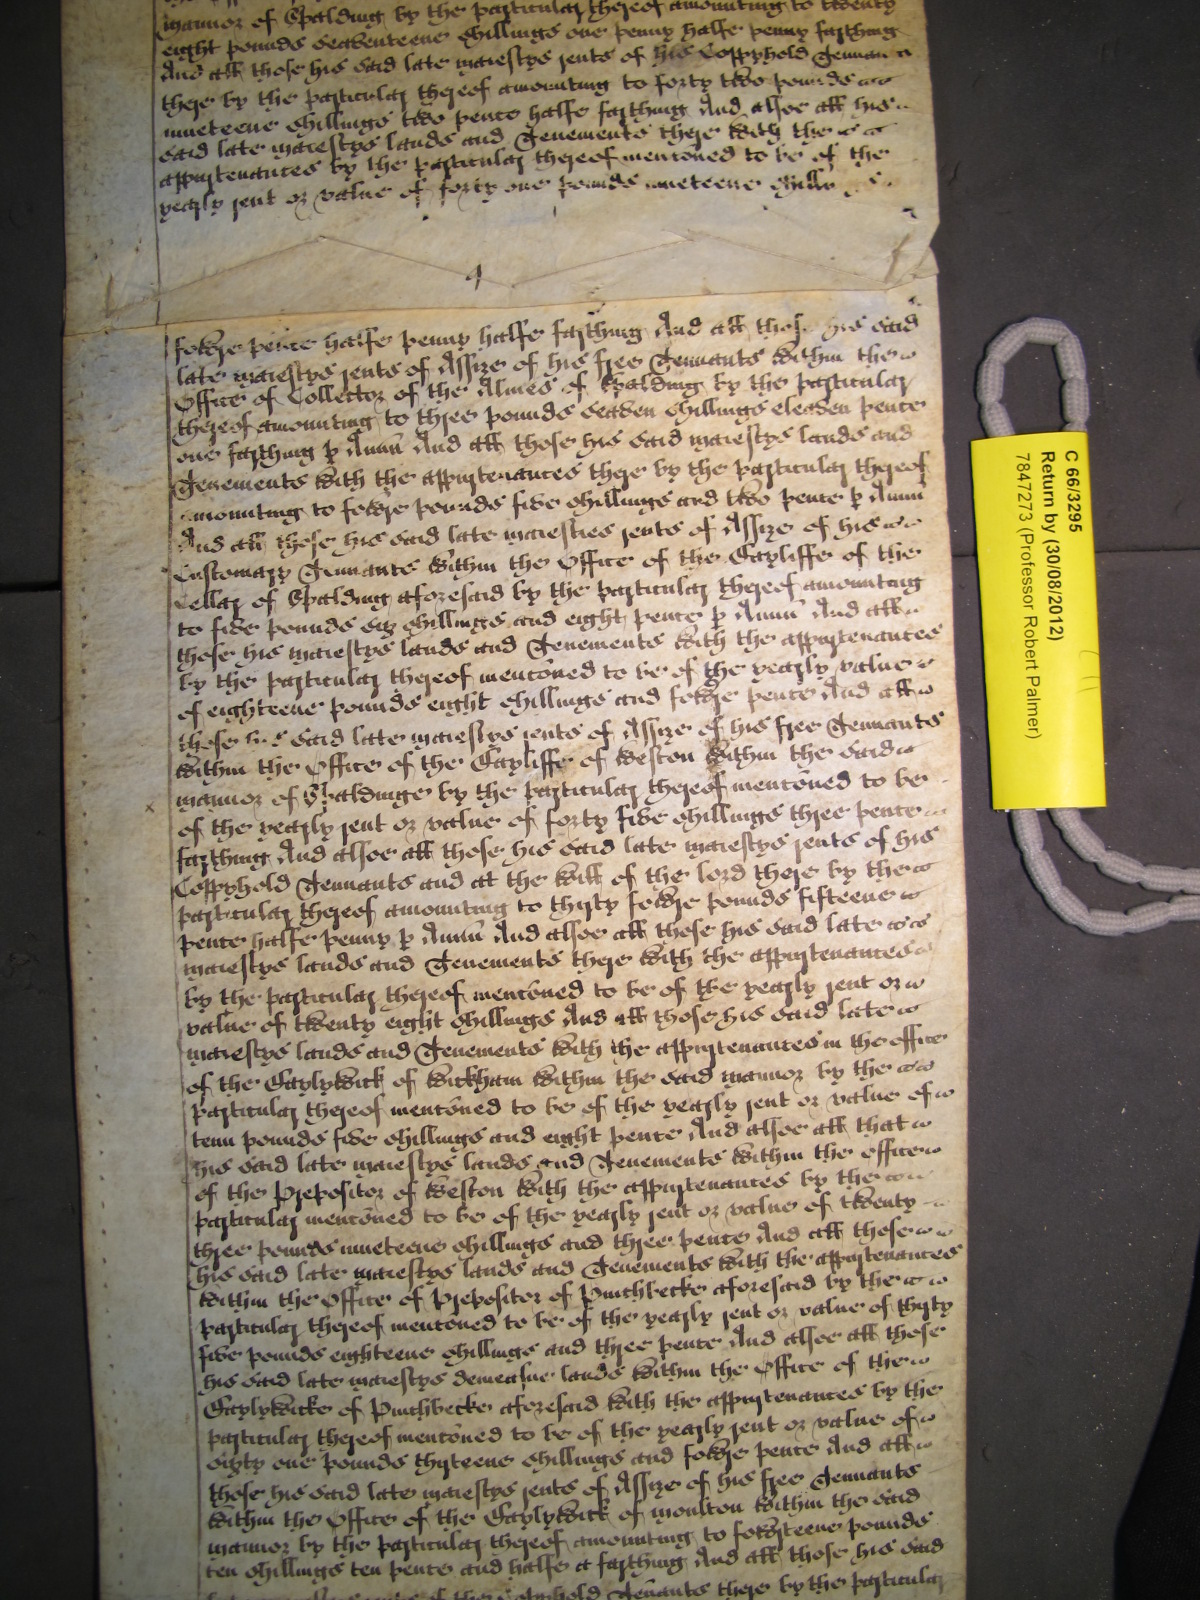 mannor of Spalding by the particular thereof amounting to twenty
eight pounds seaventeene shillings one penny halfe penny farthing
And all those his said late maiestys rents of his Coppyhold Tennants
there by the particular thereof amounting to forty two pounds
nineteene shillings two pence halfe farthing And alsoe all his
said late maiestys lands and Tenements there with the
appurtenances by the particular thereof mentoned to be of the
yearly rent or value of forty one pounds nineteene shillings
4
fowre pence halfe penny halfe farthing And all those his said
late maiestys rents of Assize of his free Tennants within the
Office of Collector of the Almes of Spalding by the particular
thereof amounting to three pounds seaven shillings eleaven pence
one farthing p Annũ And all those his said maiestys lands and
Tenements with the appurtenances there by the particular thereof
amounting to fowre pounds five shillings and two pence p Annũ
And all those his said late maiesties rents of Assize of his
Customary Tennants within the Office of the Bayliffe of the
Cellar of Spalding aforesaid by the particular thereof amounting
to five pounds six shillings and eight pence p Annũ And all
those his maiestys lands and Tenements with the appurtenances
by the particular thereof mentoned to be of the yearly value
of eighteene pounds eight shillings and fowre pence And all
those his said late maiestys rents of Assize of his free Tennants
within the Office of the Bayliffe of Weston within the said
mannor of Spaldinge by the particular thereof mentoned to be
of the yearly rent or value of forty five shillings three pence
farthing And alsoe all those his said late maiestys rents of his
Coppyhold Tennants and at the will of the lord there by the
particular thereof amounting to thirty fowre pounds fifteene
pence halfe penny p Annũ And alsoe all those his said late
maiestys lands and Tenements there with the appurtenances
by the particular thereof mentoned to be of the yearly rent or
value of twenty eight shillings And all those his said late
maiestys lands and Tenements with the appurtenances in the office
of the Baylywick of Wickham within the said mannor by the
particular thereof mentoned to be of the yearly rent or value of
tenn pounds five shillings and eight pence And alsoe all that
his said late maiestys lands and Tenements within the office
of the Prepositor of Weston with the appurtenances by the
particular mentoned to be of the yearly rent or value of twenty
three pounds nineteene shillings and three pence And all those
his said late maiestys lands and Tenements with the appurtenances
within the Office of Prepositor of Pinchbecke aforesaid by the
particular thereof mentoned to be of the yearly rent or value of thirty
five pounds eighteene shillings and three pence And alsoe all those
his said late maiestys demeasne lands within the Office of the
Baylywicke of Pinchbecke aforesaid with the appurtenances by the
particular thereof mentoned to be of the yearly rent or value of
sixty one pounds thirteene shillings and fowre pence And all
those his said late maiestys rents of Assize of his free Tennants
within the Office of the Baylywick of moulton within the said
mannor by the particular thereof amounting to fowrteene pounds
ten shillings ten pence and halfe a farthing And all those his said
of the Coppyhold Tenñants there by the particular
C 66/3295
Return by (30/08/2012)
7847273 (Professor Robert Palmer)